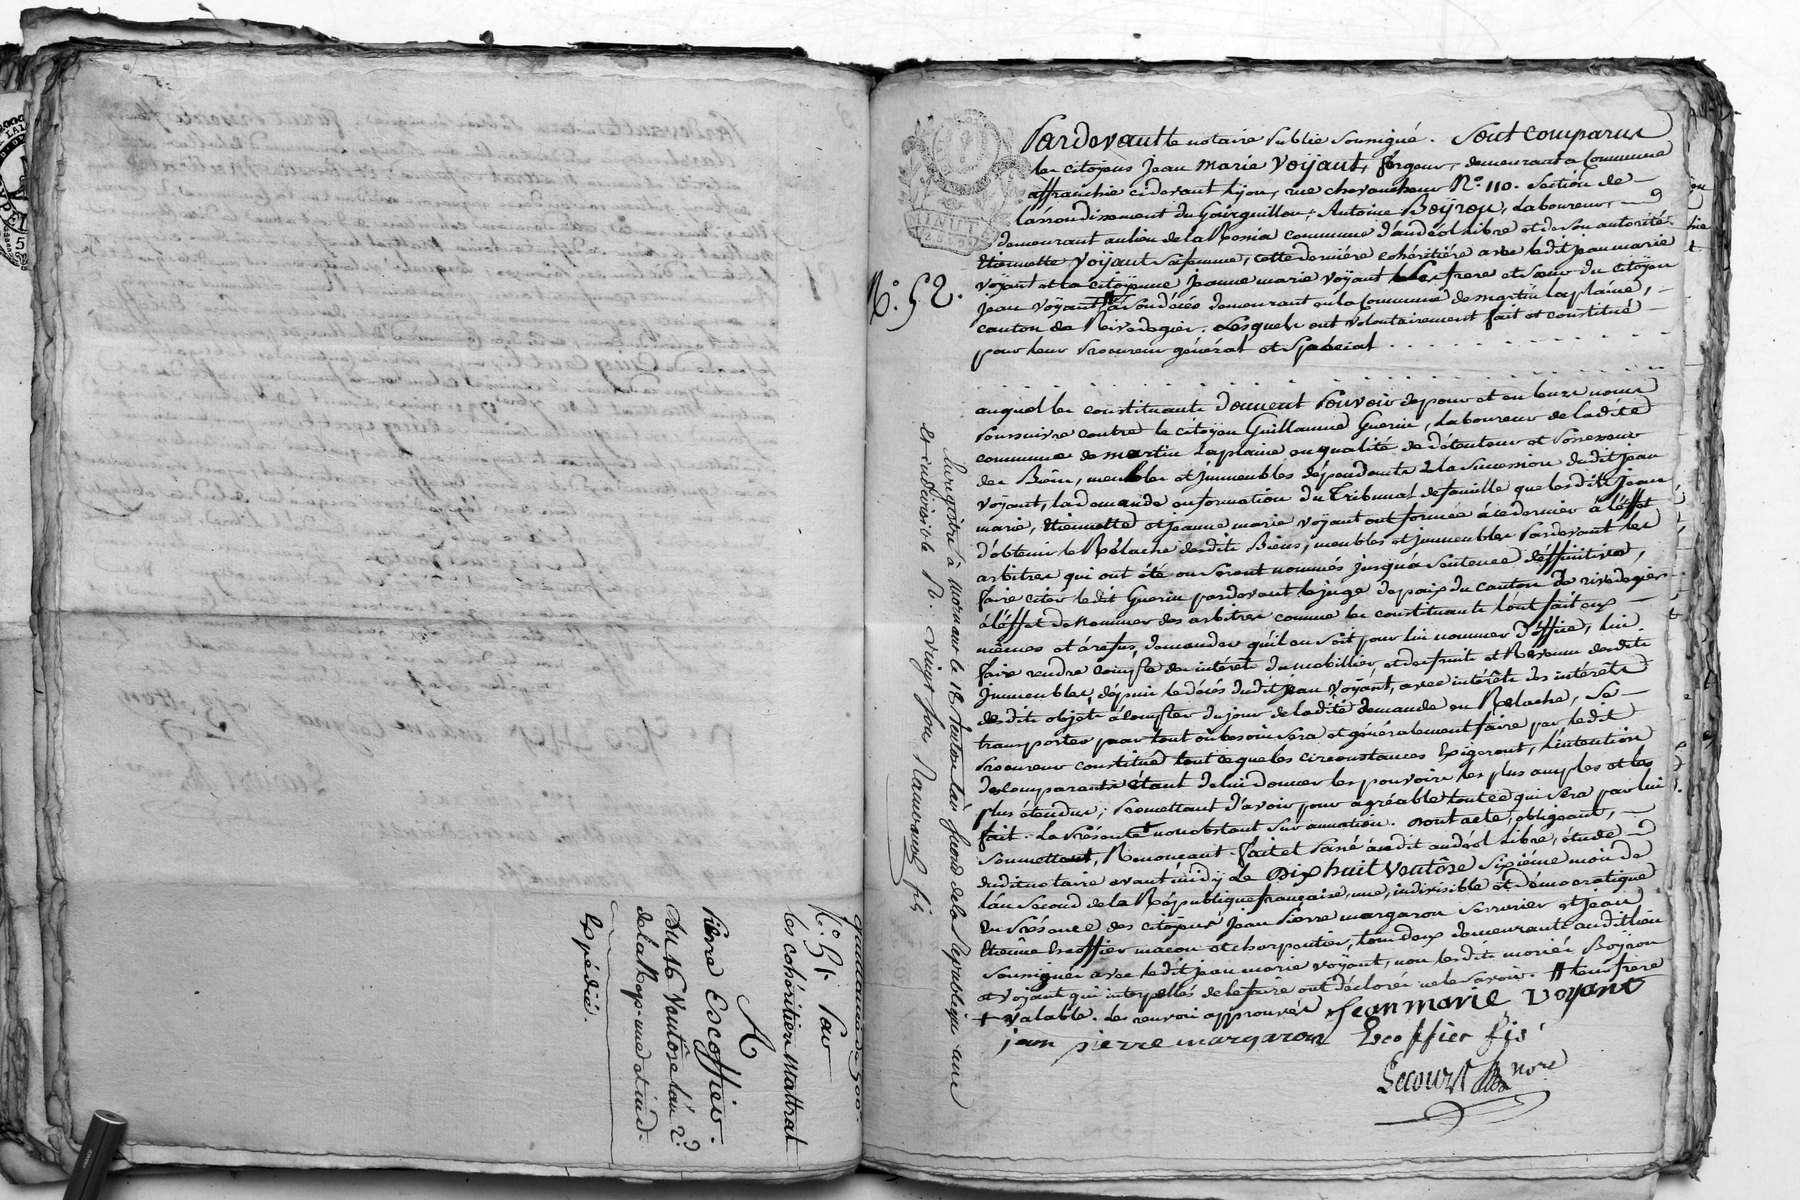 Quittance de 500.#
N.º 51 Par
les cohéritiers Mattrat
A
Pierre Escoffier.
Du 16 Ventôse l'an 2.d
de la Rép. une et ind.
Expédié.
MINUTE
N.º 52.
Pardevant le notaire Public Soussigné. Sont comparus
les citoyens Jean Marie Voyant, forgeur, demeurant a Commune
affranchie cidevant Lyon, rue chevaucheur N.º 110. Section de
l'arrondissement du Gourguillon; Antoine Boyron, Laboureur,
demeurant au lieu de la Ronzia commune d'andéol Libre et de Son autorité
Etiennette Voyant Safemme; cette derniére cohéritiére avec ledit jean marie
voyant et la citoyenne Jeanne marie voyant frere et Sœur du citoyen
jean voyant décédés demeurant en la Commune de martin la plaine,
canton de Rivedegier. Lesquels ont volontairement fait et constitué
pour leur Procureur général et Spécial
auquel les constituants donnent Pouvoir de pour et en leurs noms
Poursuivre contre le citoyen Guillaume Guerin, Laboureur de ladite
commune de martin Laplaine en qualité de détenteur et Possesseur
des Biens, meubles et Immeubles dépendants de la Succession dudit Jean
voyant, la demande en formation du Tribunal de famille que lesdits Jean
marie, Etiennette et Jeanne marie voyant ont formée à ce dernier à l'éffet
d'obtenir le Rélache desdits Biens, meubles et Immeubles Pardevant les
arbitres qui ont été ou Seront nommés jusqu'à Sentence déffinitive,
faire citer ledit Guerin pardevant le juge de paix du canton de rivedegier
à l'éffet de Nommer des arbitres comme les constituants l'ont fait eux
mêmes et à refus, demander qu'il en Soit pour lui nommer d'office, lui
faire rendre compte des intérêts du mobillier, et des fruits et Revenus desdits
Immeubles, dépuis le décés dudit jean Voyant, avec intérêts des intérêts
desdits objets à compter du jour de ladite demande en Rélache, Se
transporter partout où besoin Sera et généralement faire par ledit
Procureur constitué tout ce que les circonstances Exigeront, L'intention
des Comparants étant de lui donner les pouvoirs les plus amples et les
plus étendus; Promettant d'avoir pour agréable tout ce qui Sera par lui
fait. La Présente nonobstant Surannation. Dont acte, obligeant,
Soumettant, Renonceant. Fait et Passé audit andéol Libre, étude
dudit notaire avant midy Le Dix huit Ventôse Sixiéme mois de
l'an Second de la République française, une, indivisible et démocratique
En Présence des citoyens Jean Pierre margaron Serrurier et Jean
Etienne Escoffier maçon et charpentier, tous deux demeurants audit lieu
Soussignés avec ledit jean marie voyant, non lesdits mariés Boyron
et voyant qui interpellés de le faire ont déclaré ne le Savoir. # leur frere
+ valable. Les renvois approuvés Jean marie Voyant
jean pierre margaron Escoffier fils
Lecourt Nore
Enregistré à Mornant le 18 Ventose l'an Second de la République une
et indivisible R. vingt Sous